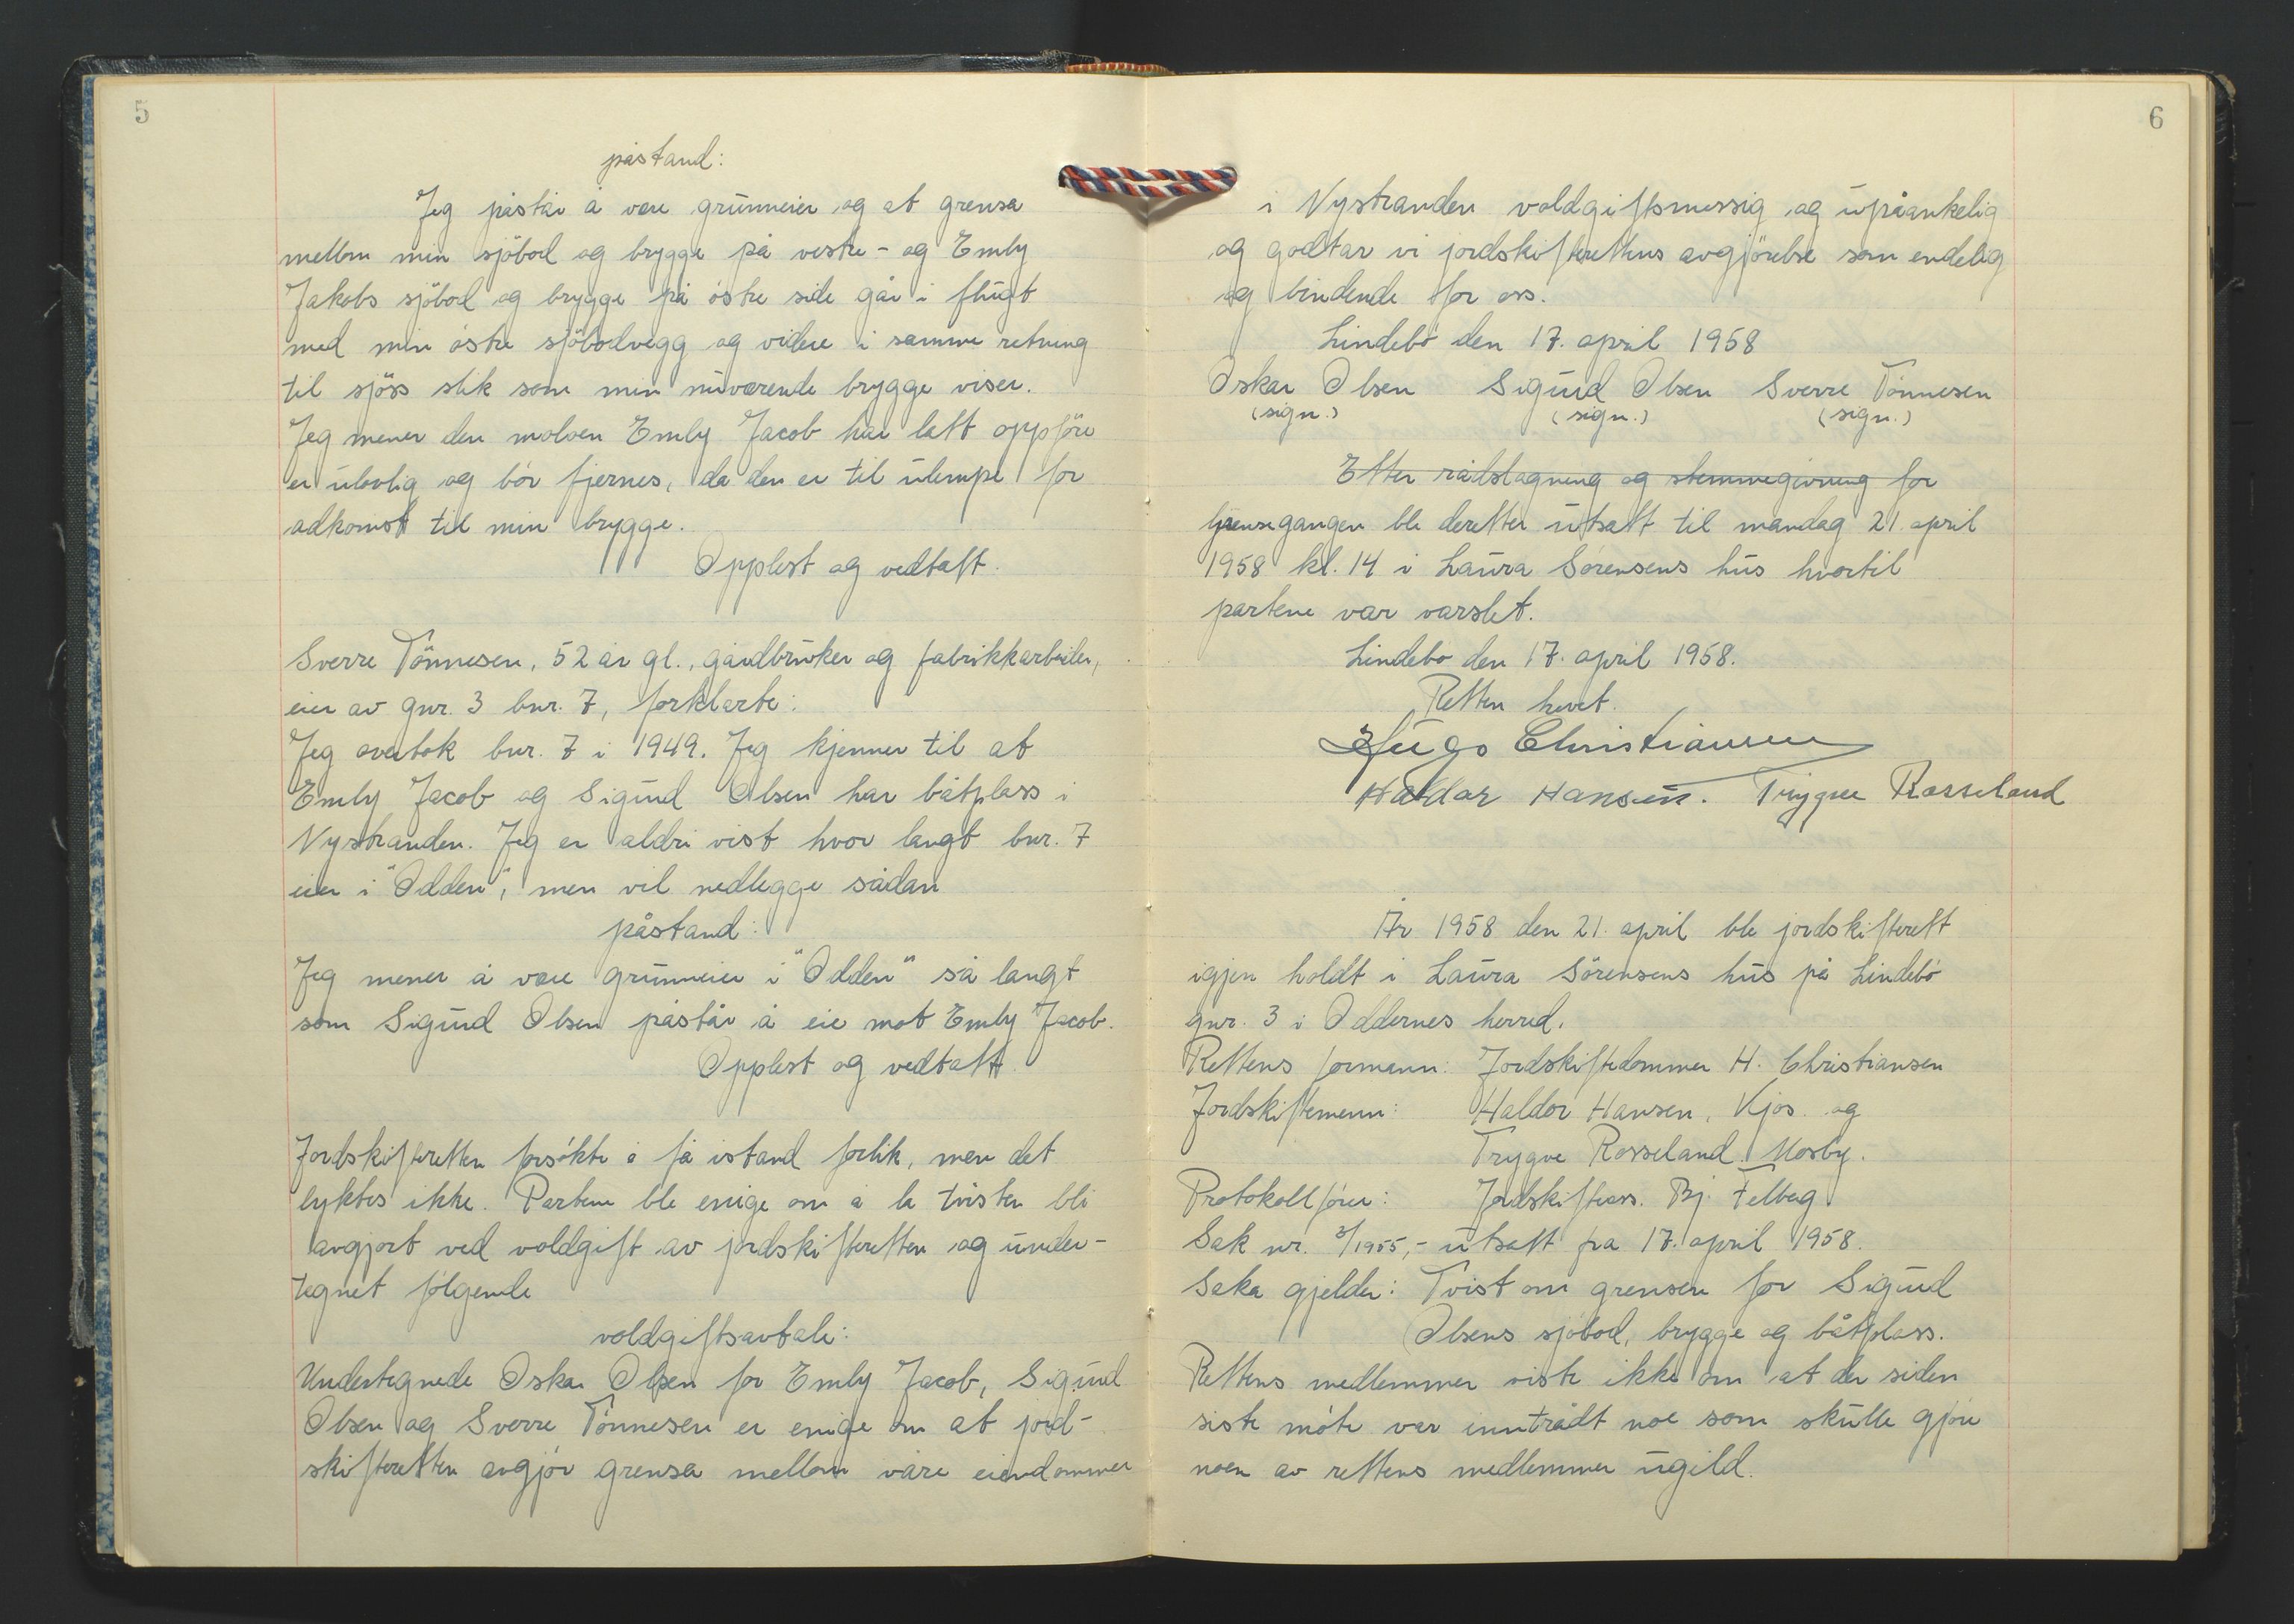 5
påstand:
Jeg påstår å være grunneier og at grensa
mellom min sjöbod og brygge på vestre - og Emly
Jakobs sjöbod og brygge på östre side går i flugt
med min östre sjöbodvegg og videre i samme retning
til sjöss slik som min nuværende brygge viser.
Jeg mener den moloen Emly Jacob har latt oppföre
er ulovlig og bör fjernes, da den er til ulempe for
adkomst til min brygge.
Opplest og vedtatt.
Sverre Tönnesen, 52 år gl., gårdbruker og fabrikkarbeider,
eier av gnr. 3 bnr. 7, forklarte:
Jeg overtok bnr. 7 i 1949. Jeg kjenner til at
Emly Jacob og Sigurd Olsen har båtplass i
Nystranden. Jeg er aldri vist hvor langt bnr. 7
eier i "Odden", men vil nedlegge sådan
påstand:
Jeg mener å være grunneier i "Odden" så langt
som Sigurd Olsen påstår å eie mot Emly Jacob.
Opplest og vedtatt.
Jordskifteretten forsökte å få istand forlik, men det
lyktes ikke. Partene ble enige om å la tvisten bli
avgjort ved voldgift av jordskifteretten og under-
tegnet fölgende
voldgiftsavtale:
Undertegnede Oskar Olsen for Emly Jacob, Sigurd
Olsen og Sverre Tönnesen er enige om at jord-
skifteretten avgjör grensa mellom våre eiendommer
6
i Nystranden voldgiftsmessig og upåankelig
og godtar vi jordskifterettens avgjörelse som endelig
og bindende for oss.
Lindebö den 17. april 1958
Oskar Olsen Sigurd Olsen Sverre Tönnesen
(sign.) (sign.) (sign.)
Etter rådslagning og stemmegivning for
Grensegangen ble deretter utsatt til mandag 21. april
1958 kl. 14 i Laura Sörensens hus hvortil
partene var varslet.
Lindebö den 17. april 1958.
Retten hevet.
Hugo Christiansen
Haldor Hansen. Trygve Rosseland
År 1958 den 21. april ble jordskifterett
igjen holdt i Laura Sörensens hus på Lindebö
gnr. 3 i Oddernes herred.
Rettens formann: Jordskiftedommer H. Christiansen
Jordskiftemenn: Haldor Hansen, Kjos. og
Trygve Rosseland. Mosby.
Protokollförer: Jordskifteass. Bj. Felberg
Sak nr. 3/1955,- utsatt fra 17. april 1958.
Saka gjelder: Tvist om grensen for Sigurd
Olsens sjöbod, brygge og båtplass.
Rettens medlemmer viste ikke om at der siden
siste möte var inntrådt noe som skulle gjöre
noen av rettens medlemmer ugild.